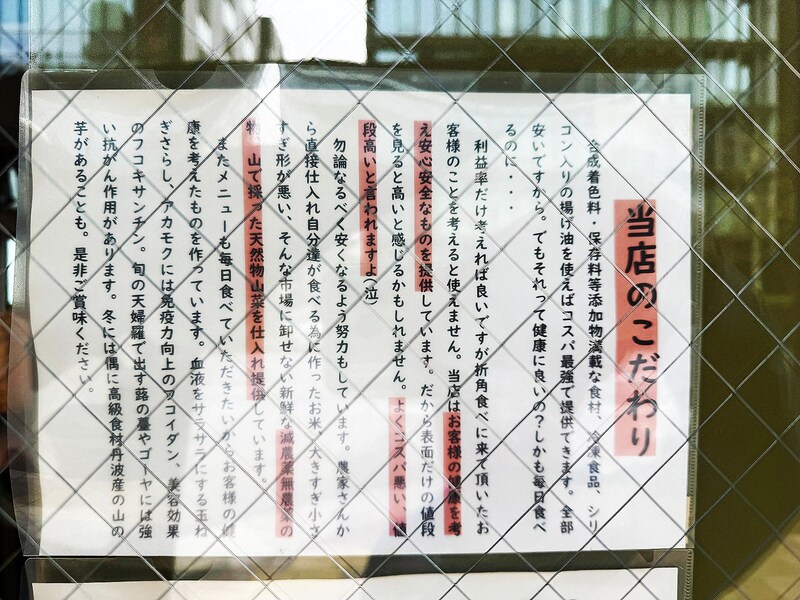 当店のこだわり
合成着色料・保存料等添加物満載な食材、冷凍食品、シリ
コン入りの揚げ油を使えばコスパ最強で提供できます。全部
安いですから。でもそれって健康に良いの？しかも毎日食べ
るのに・・・
利益率だけ考えれば良いですが折角食べに来て頂いたお
客様のことを考えると使えません。当店はお客様の健康を考
え安心安全なものを提供しています。だから表面だけの値段
を見ると高いと感じるかもしれません。よくコスパ悪い、値
段高いと言われますよ(泣)
勿論なるべく安くなるよう努力もしています。農家さんか
ら直接仕入れ自分達が食べる為に作ったお米、大きすぎ小さ
すぎ形が悪い、そんな市場に卸せない新鮮な減農薬無農薬の
物、山で採った天然物山菜を仕入れ提供しています。
またメニューも毎日食べていただきたいからお客様の健
康を考えたものを作っています。血液をサラサラにする玉ね
ぎさらし、アカモクには免疫力向上のフコイダン、美容効果
のフコキサンチン。旬の天婦羅で出す蕗の薹やゴーヤには強
い抗がん作用があります。冬には偶に高級食材丹波産の山の
芋があることも。是非ご賞味ください。